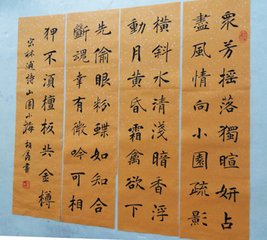 衆芳摇落獨暄妍占
盡風情向小園疏影
橫斜水清淺暗香浮
動月黄昏霜禽欲下
先偷眼粉蝶如知合
斷魂幸有微吟可相
狎不須檀板共金樽
宋林逋詩山園小梅 書